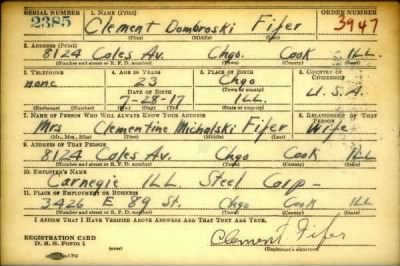 SERIAL NUMBER 1. NAME (Print) ORDER NUMBER
2385 Clement Dombroski Fifer 3947
(First) (Middle) (Last)
2. ADDRESS (Print)
8124 Coles Av. Chgo. Cook ILL.
(Number and street or R. F. D. number) (Town) (County) (State)
3. TELEPHONE 4. AGE IN YEARS 5. PLACE OF BIRTH 6. COUNTRY OF CITIZENSHIP
none 23 Chgo
DATE OF BIRTH (Town or county)
7-28-17 ILL. U.S.A.
(Exchange) (Number) (Mo.) (Day) (Yr.) (State or country)
7. NAME OF PERSON WHO WILL ALWAYS KNOW YOUR ADDRESS 8. RELATIONSHIP OF THAT PERSON
Mrs. Clementine Michalski Fifer Wife
(Mr., Mrs., Miss) (First) (Middle) (Last)
9. ADDRESS OF THAT PERSON
8124 Coles Av. Chgo Cook ILL
(Number and street or R. F. D. number) (Town) (County) (State)
10. EMPLOYER'S NAME
Carnegie ILL. Steel Corp -
11. PLACE OF EMPLOYMENT OR BUSINESS
3426 E 89 St. Chgo Cook ILL
(Number and street or R. F. D. number) (Town) (County) (State)
I AFFIRM THAT I HAVE VERIFIED ABOVE ANSWERS AND THAT THEY ARE TRUE.
REGISTRATION CARD
D. S. S. Form 1 Clement Fifer
(Registrant's signature)